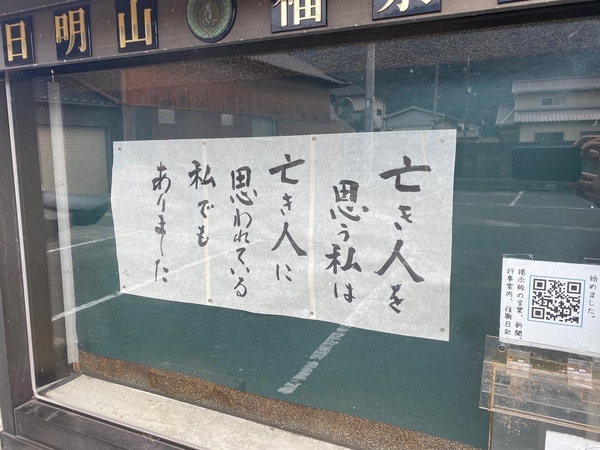 日明山
福
亡き人を
思う私は
亡き人に
思われている
私でも
ありました
始めました。
掲示板の言葉、新聞、
行事案内、住職日記